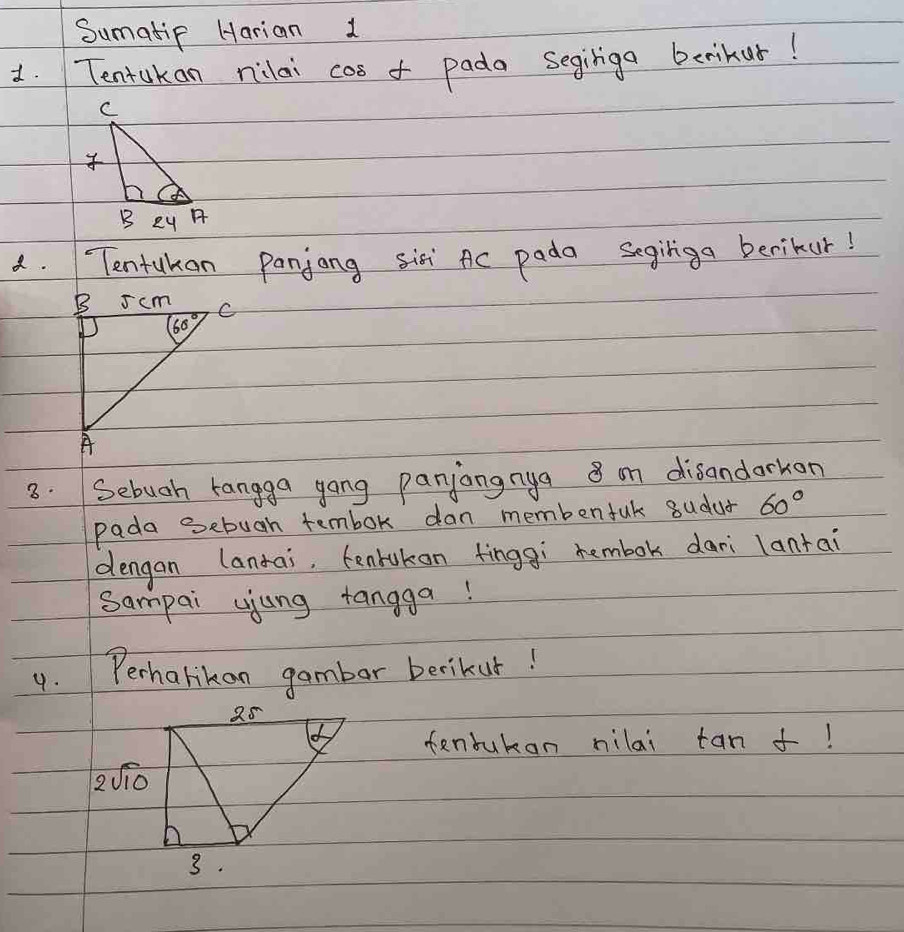 Sumatip Harian 1
1. Tentukan nilai cos α pada segitiga berikut !
C
7
α
B 24 A
2. Tentukan panjang sisi AC pada segitiga berikut !
B 5cm C
60°
A
3. Sebuah tangga yang panjangnya 8 m disandarkan
pada sebuah tembok dan membentuk sudut 60°
dengan lantai, tentukan tinggi tembok dari lantai
sampai ujung tangga !
4. Perhatikan gambar berikut !
25
α
tentukan nilai tan α !
2√10
3.